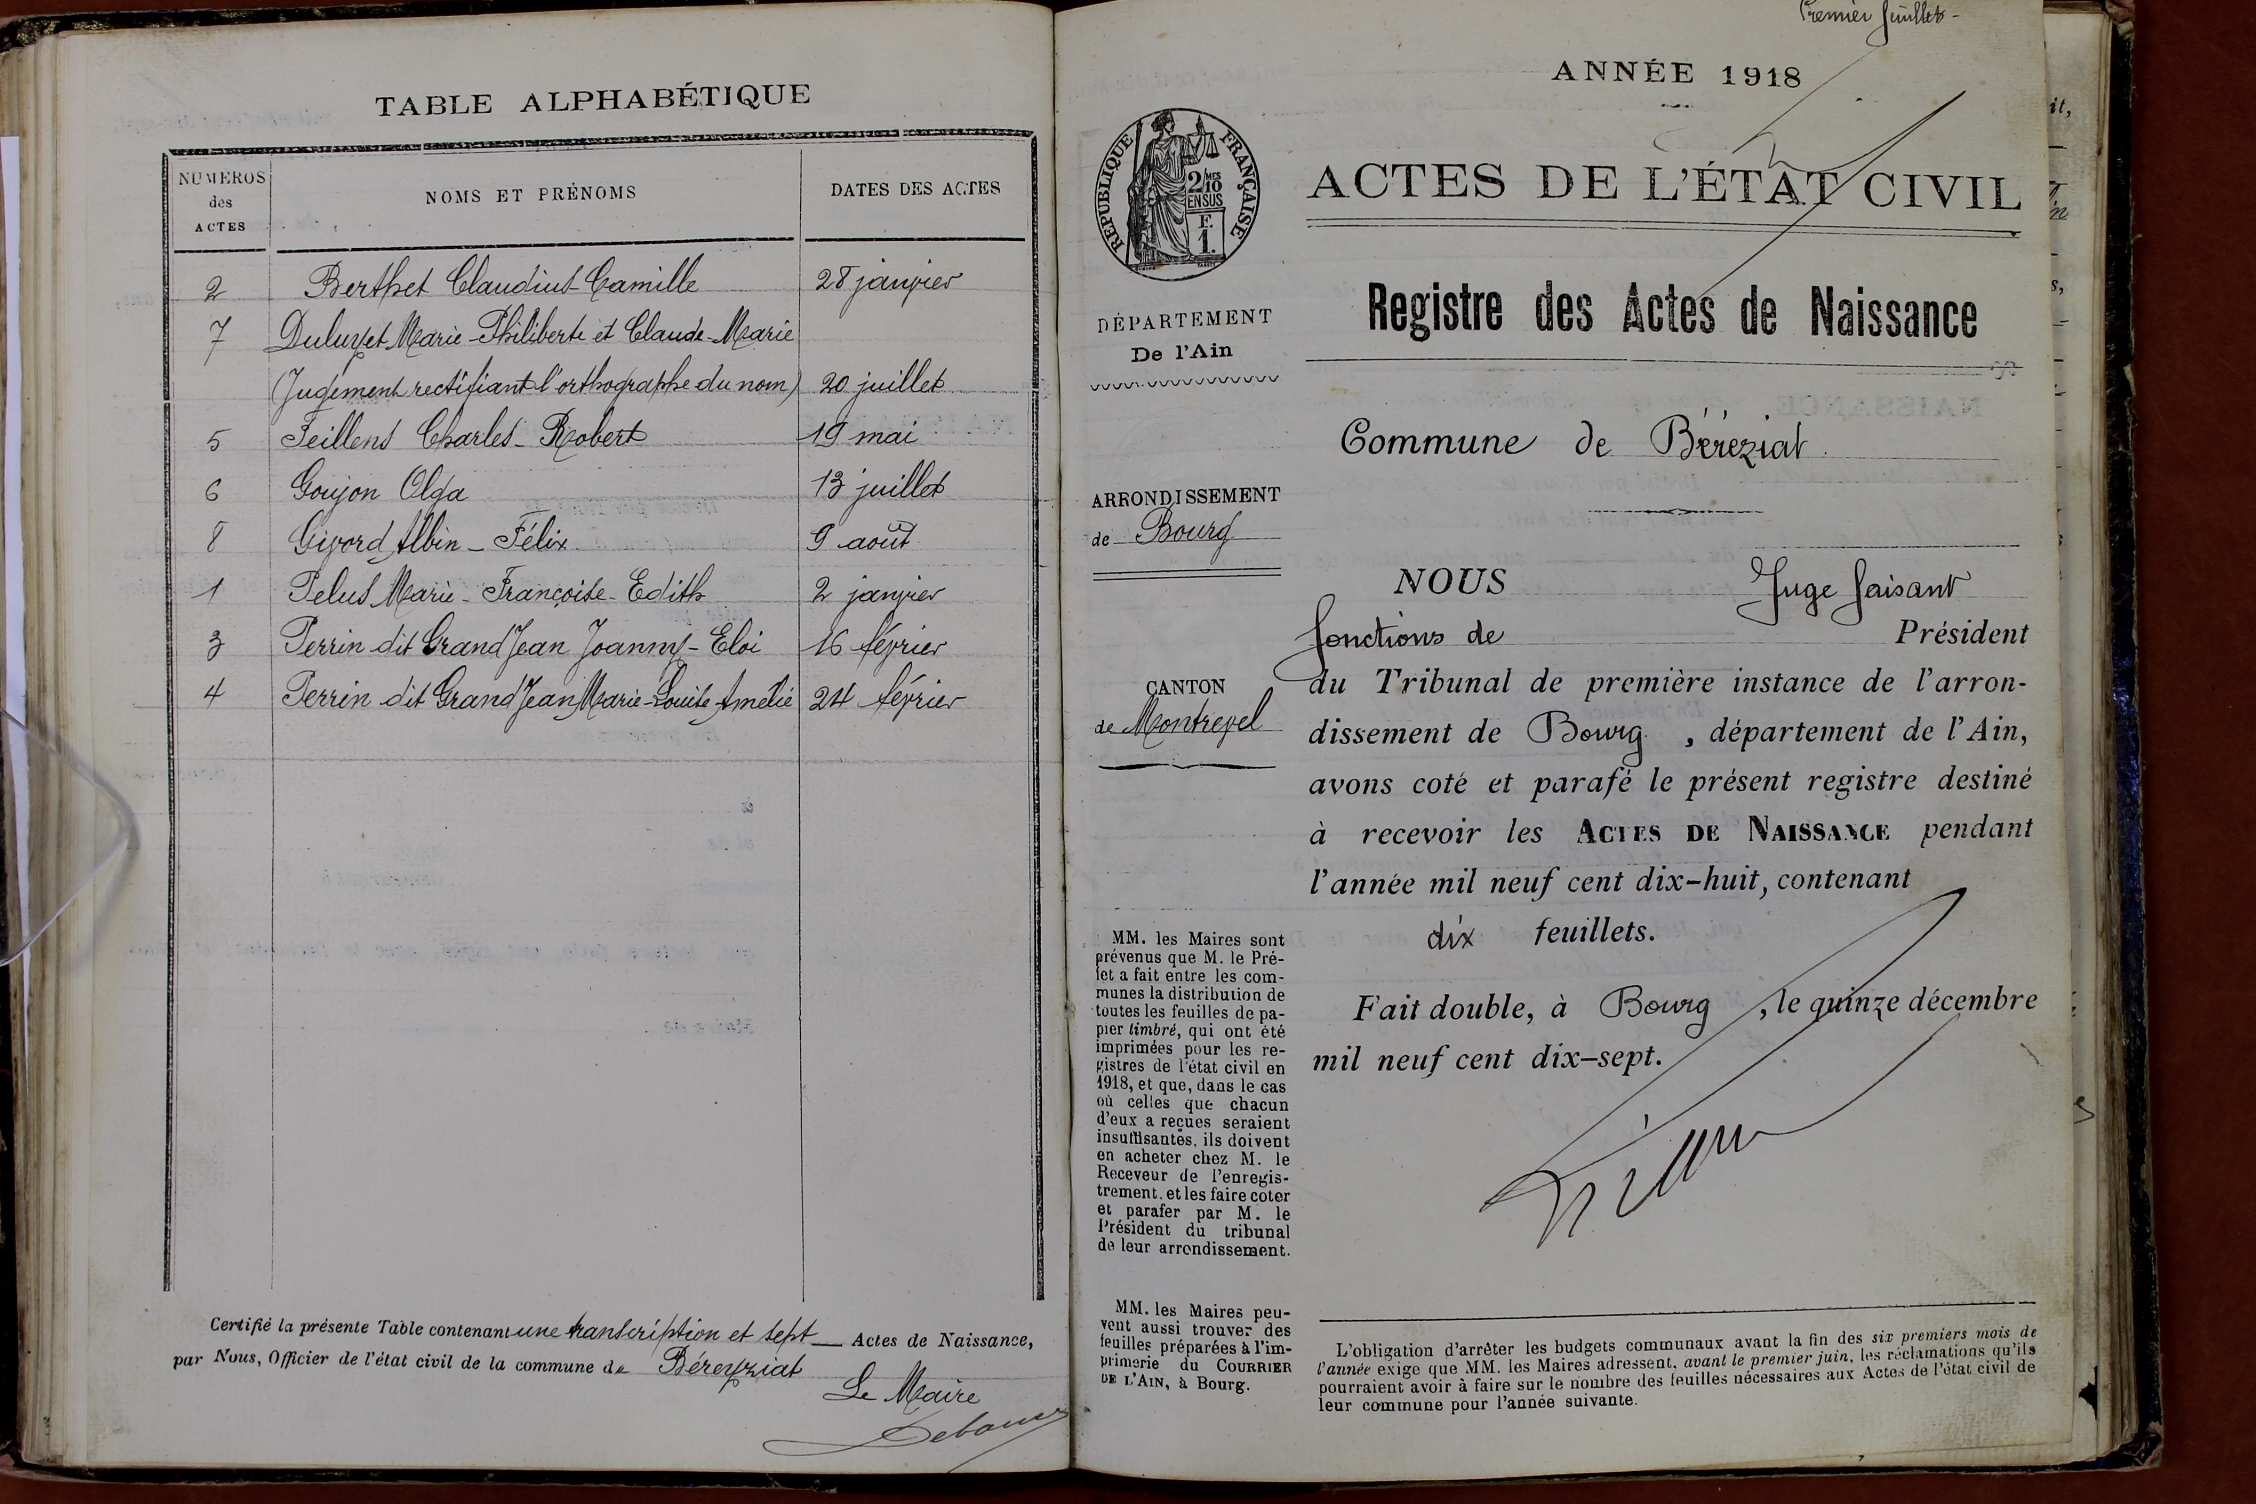 TABLE ALPHABÉTIQUE
NUMEROS des ACTES
NOMS ET PRÉNOMS
DATES DES ACTES
2 Berthet Claudius Camille 28 janvier
7 Duluyet Marie-Philiberte et Claude-Marie
(Jugement rectifiant l'orthographe du nom) 20 juillet
5 Feillens Charles-Robert 19 mai
6 Goujon Olga 13 juillet
8 Givord Albin-Félix 9 août
1 Pelus Marie-Françoise-Edith 2 janvier
3 Perrin dit GrandJean Joanny-Eloi 16 février
4 Perrin dit GrandJean Marie-Louise-Amélie 24 février
Certifié la présente Table contenant une transcription et sept Actes de Naissance,
par Nous, Officier de l'état civil de la commune de Béreyziat
Le Maire
Premier feuillet-
ANNÉE 1918
RÉPUBLIQUE FRANÇAISE
2/10 MES
EN SUS
F.
1.
ACTES DE L'ÉTAT CIVIL
Registre des Actes de Naissance
DÉPARTEMENT
De l'Ain
Commune de Béréziat
ARRONDISSEMENT
de Bourg
CANTON
de Montrevel
NOUS Juge faisant
fonctions de Président
du Tribunal de première instance de l'arron-
dissement de Bourg, département de l'Ain,
avons coté et parafé le présent registre destiné
à recevoir les ACTES DE NAISSANCE pendant
l'année mil neuf cent dix-huit, contenant
dix feuillets.
Fait double, à Bourg, le quinze décembre
mil neuf cent dix-sept.
MM. les Maires sont
prévenus que M. le Pré-
fet a fait entre les com-
munes la distribution de
toutes les feuilles de pa-
pier timbré, qui ont été
imprimées pour les re-
gistres de l'état civil en
1918, et que, dans le cas
où celles que chacun
d'eux a reçues seraient
insuffisantes, ils doivent
en acheter chez M. le
Receveur de l'enregis-
trement, et les faire coter
et parafer par M. le
Président du tribunal
de leur arrondissement.
MM. les Maires peu-
vent aussi trouver des
feuilles préparées à l'im-
primerie du COURRIER
DE L'AIN, à Bourg.
L'obligation d'arrêter les budgets communaux avant la fin des six premiers mois de
l'année exige que MM. les Maires adressent, avant le premier juin, les réclamations qu'ils
pourraient avoir à faire sur le nombre des feuilles nécessaires aux Actes de l'état civil de
leur commune pour l'année suivante.